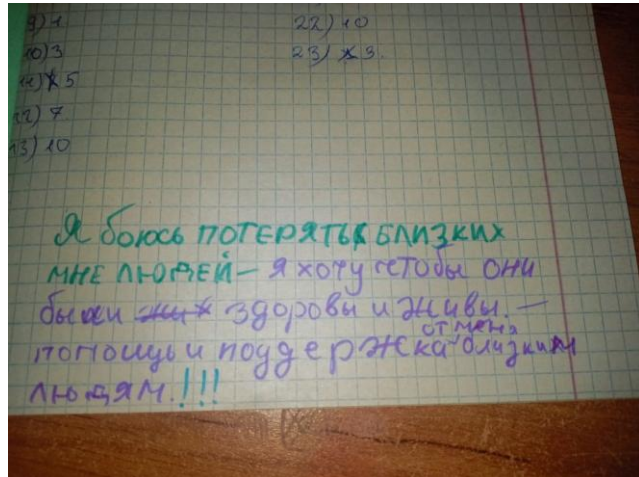 9) 1
10) 3
11) 5
12) 7
13) 10
22) 10
23) 3.
Я боюсь ПОТЕРЯТЬ БЛИЗКИХ
МНЕ ЛЮДЕЙ — я хочу чтобы они
были здоровы и живы. —
от меня
помощь и поддержка близким
людям.!!!